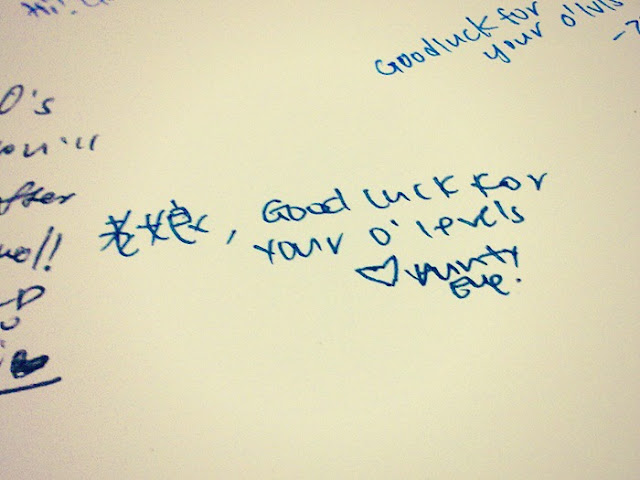 Hi!
Goodluck for
your o'lvls
O's
you'll
after
老娘, Good luck for
your o' levels
♡
Eve.